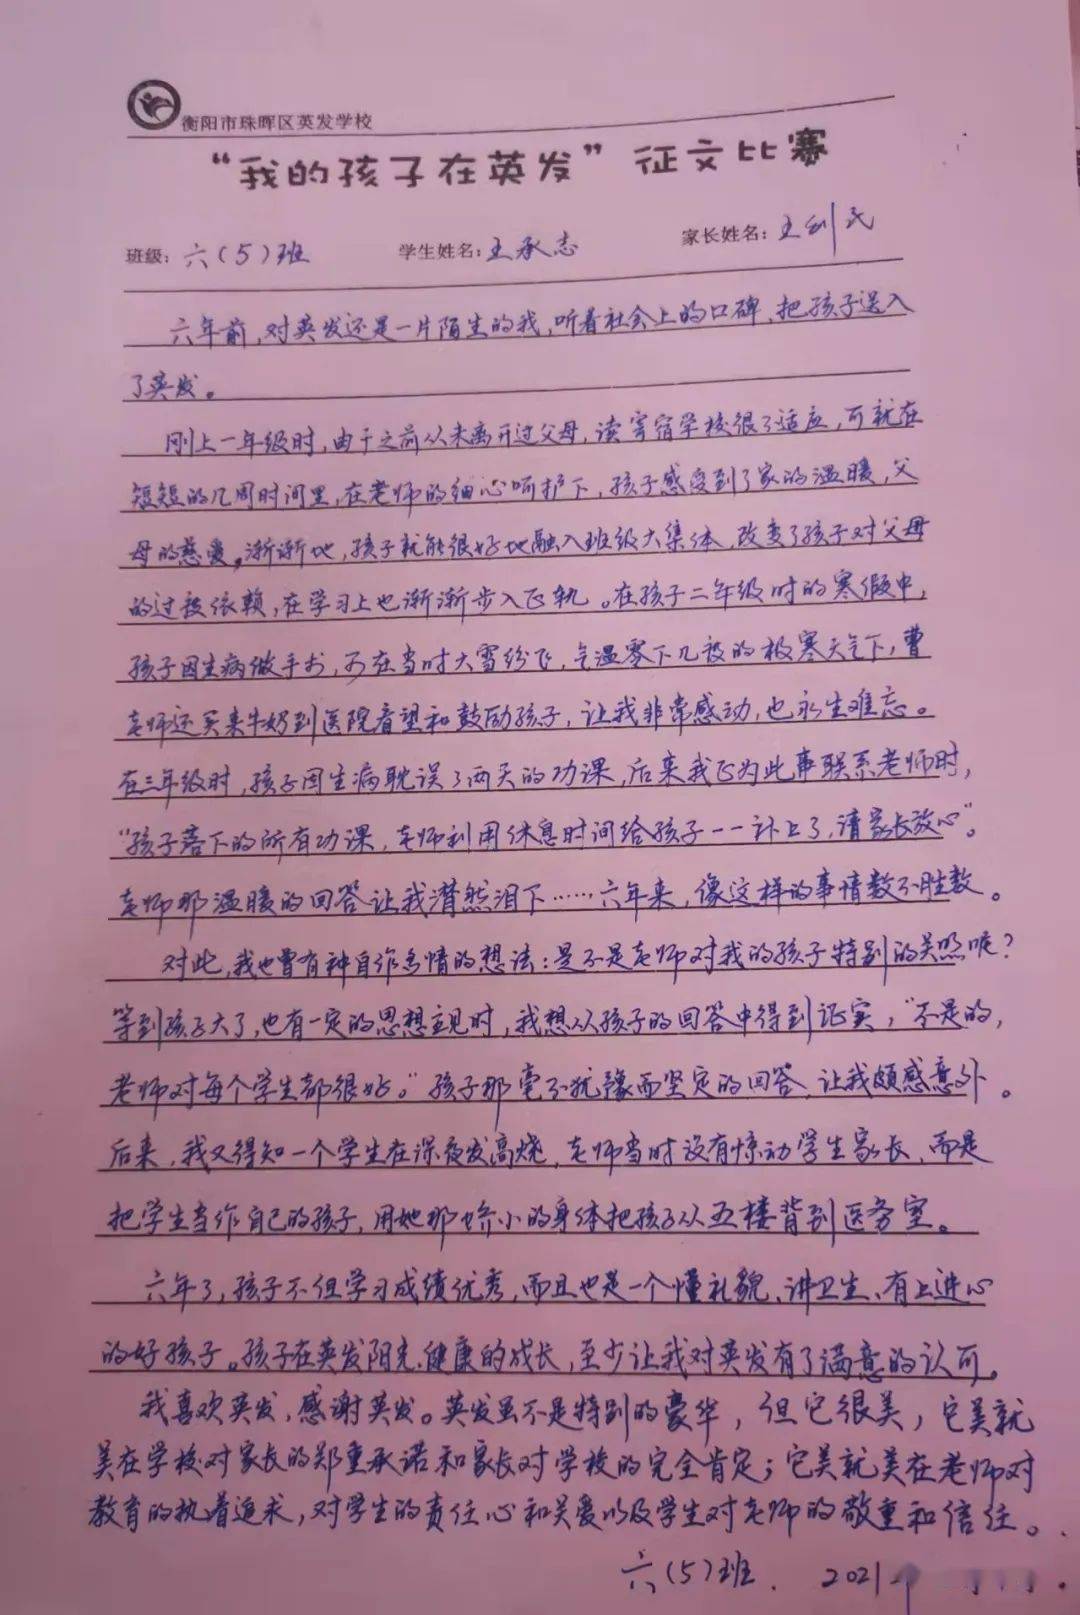 衡阳市珠晖区英发学校
“我的孩子在英发”征文比赛
班级：六(5)班 学生姓名：王承志 家长姓名：王利民
六年前，对英发还是一片陌生的我，听着社会上的口碑、把孩子送入
了英发。
刚上一年级时，由于之前从未离开过父母，读寄宿学校很不适应，可就在
短短的几周时间里，在老师的细心呵护下，孩子感受到了家的温暖，父
母的慈爱。渐渐地，孩子就能很好地融入班级大集体，改变了孩子对父母
的过被依赖，在学习上也渐渐步入正轨。在孩子二年级时的寒假中，
孩子因生病做手术，而在当时大雪纷飞，气温零下几度的极寒天气下，曹
老师还买来牛奶到医院看望和鼓励孩子，让我非常感动，也永生难忘。
在三年级时，孩子因生病耽误了两天的功课，后来我正为此事联系老师时，
“孩子落下的所有功课，老师利用休息时间给孩子一一补上了，请家长放心”。
老师那温暖的回答让我潸然泪下……六年来，像这样的事情数不胜数。
对此，我也曾有种自作多情的想法：是不是老师对我的孩子特别的关照呢？
等到孩子大了，也有一定的思想主见时，我想从孩子的回答中得到证实，“不是的，
老师对每个学生都很好。”孩子那毫不犹豫而坚定的回答，让我颇感意外。
后来，我又得知一个学生在深夜发高烧，老师当时没有惊动学生家长，而是
把学生当作自己的孩子，用她那娇小的身体把孩子从五楼背到医务室。
六年了，孩子不但学习成绩优秀，而且也是一个懂礼貌、讲卫生、有上进心
的好孩子。孩子在英发阳光、健康的成长，至少让我对英发有了满意的认可。
我喜欢英发，感谢英发。英发虽不是特别的豪华，但它很美，它美就
美在学校对家长的郑重承诺和家长对学校的完全肯定；它美就美在老师对
教育的执着追求，对学生的责任心和关爱以及学生对老师的敬重和信任。
六(5)班． 2021